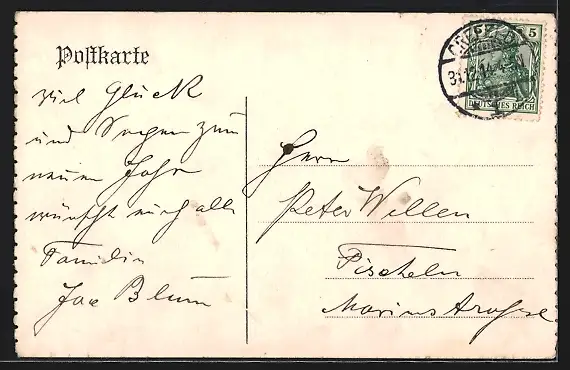 Postkarte
CREFELD
31.12.14.4-5N
5
DEUTSCHES REICH
viel Glück
und Segen zum
neuen Jahr
wünscht euch alle
Familie
Jac Blum
Herrn
Peter Willen
Fischeln
Marienstrasse